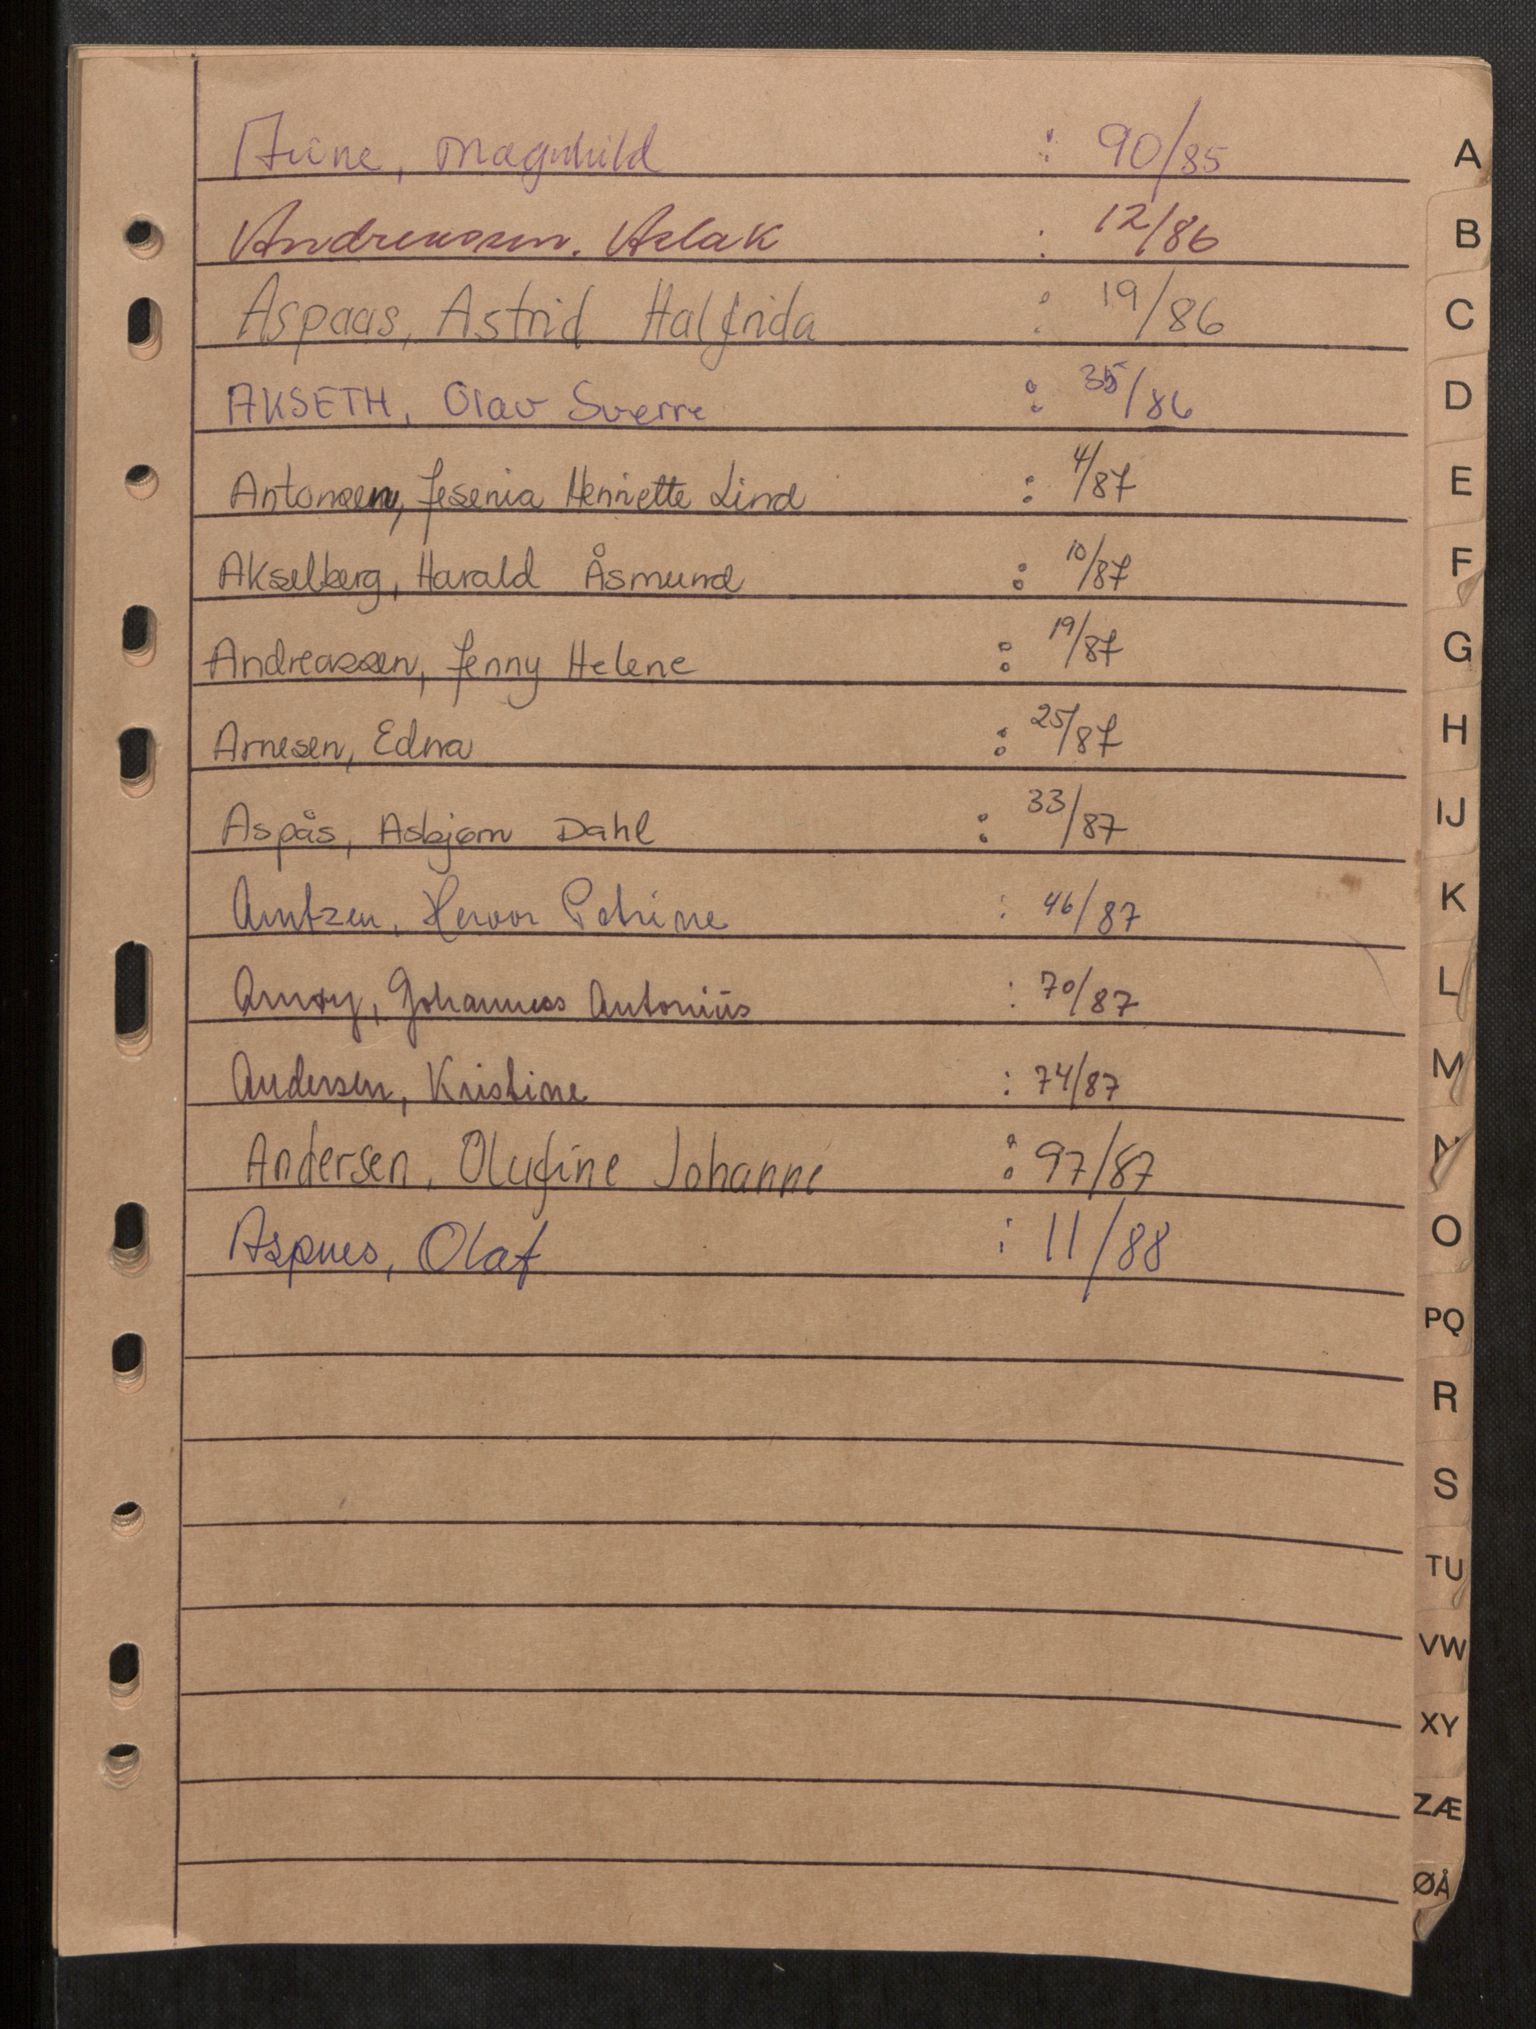 Aune, Magnhild : 90/85
Andreassen, Aslak : 12/86
Aspaas, Astrid Halfrida : 19/86
AKSETH, Olav Sverre : 35/86
Antonsen, Jesenia Henriette Lind : 4/87
Akselberg, Harald Åsmund : 10/87
Andreassen, Jenny Helene : 19/87
Arnesen, Edna : 25/87
Aspås, Asbjørn Dahl : 33/87
Arntzen, Hervor Petrine : 46/87
Arnøy, Johannes Antonius : 70/87
Andersen, Kristine : 74/87
Andersen, Olufine Johanne : 97/87
Aspnes, Olaf : 11/88
A
B
C
D
E
F
G
H
IJ
K
L
M
N
O
PQ
R
S
TU
VW
XY
ZÆ
ØÅ